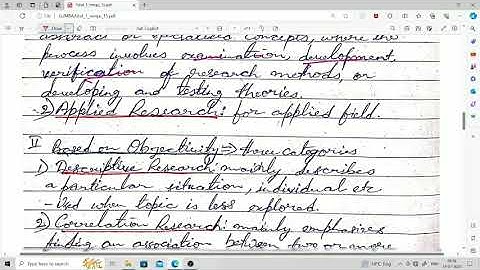 abstract or specialised concepts, where the
process involves examination, development,
verification of research methods, or
developing and testing theories.
2) Applied Research: for applied field.
II Based on Objectivity ⇒ three categories
1) Descriptive Research: mainly describes
a particular situation, individual etc
- Used when topic is less explored.
2) Correlation Research: mainly emphasises
finding an association between two or more
Type here to search